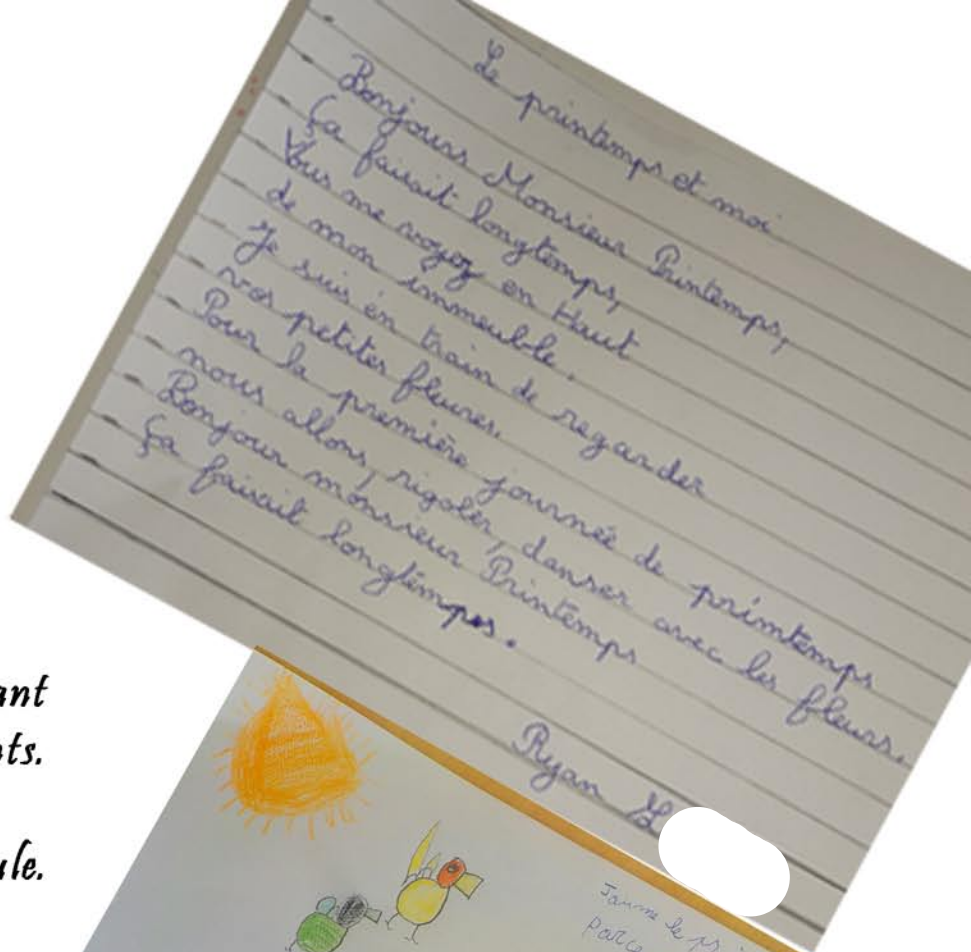 Le printemps et moi
Bonjours Monsieur Printemps,
Ça faisait longtemps,
Vous me voyez en Haut
de mon immeuble.
Je suis en train de regarder
vos petites fleures.
Pour la première journée de printemps
nous allons, rigoler, danser avec les fleurs.
Bonjour monsieur Printemps
Ça faisait longtemps.
Ryan
ant
ts.
ule.
J'aime le
Parce